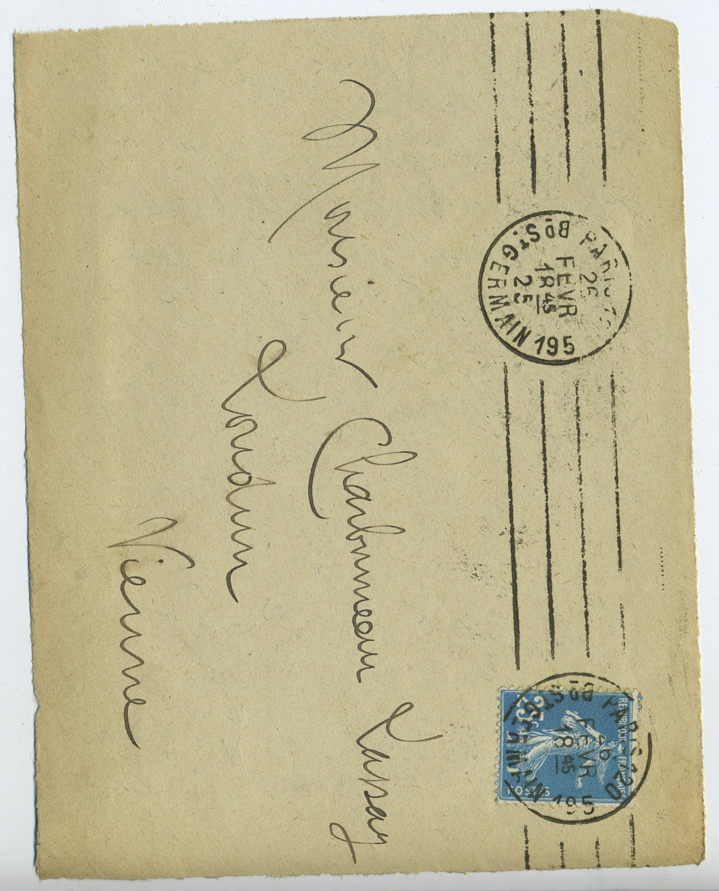 PARIS
Bd St GERMAIN 195
26
FEVR
18 45
25
PARIS 120
Bd St GERMAIN 195
26
FEVR
18 45
25c
POSTES
Monsieur Charbonneau Lassay
Loudun
Vienne